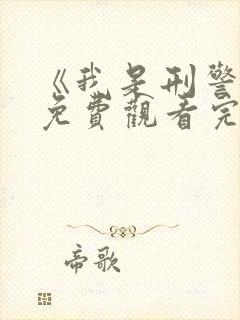 《我是刑警
免費觀看完
帝歌